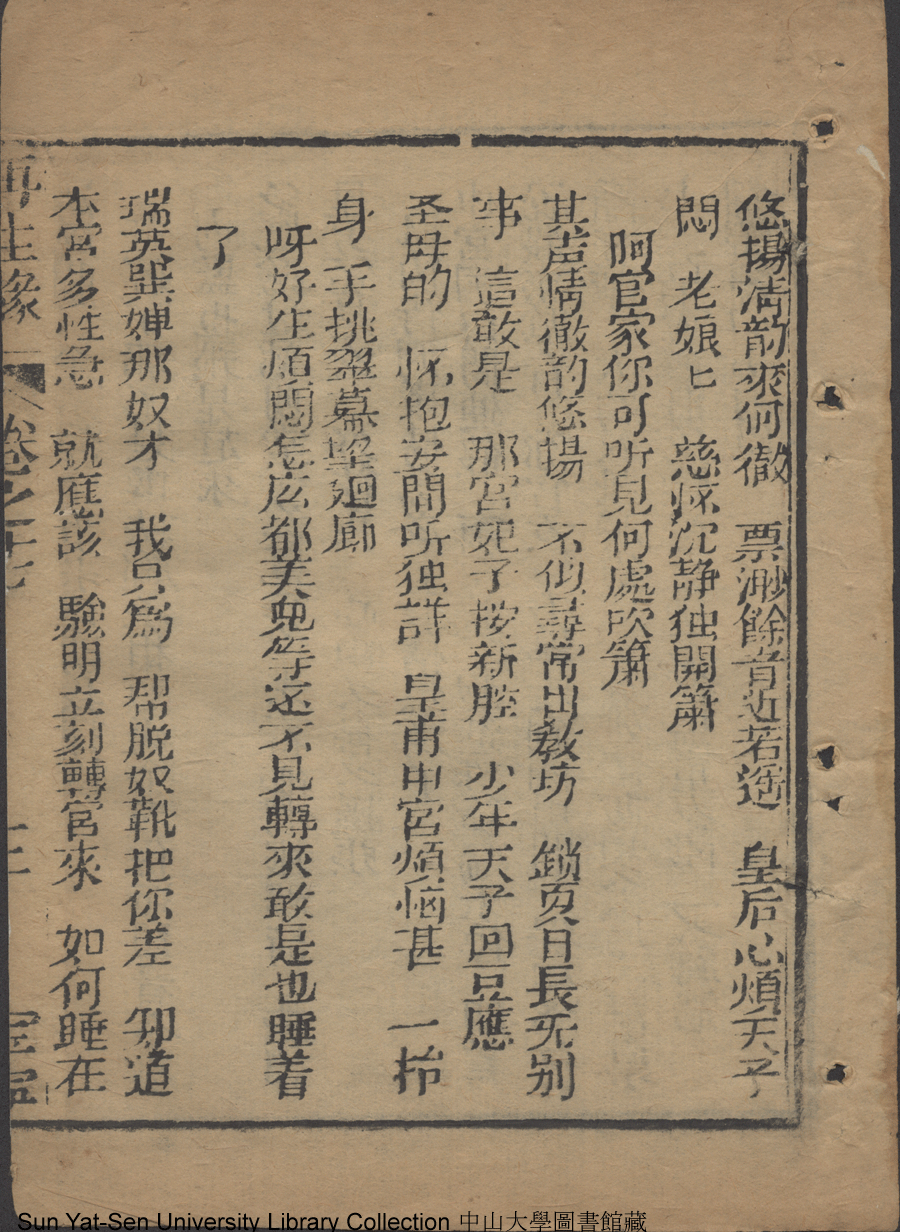 悠揚清韵來何徹　票渺餘音近若遥　皇后心煩天子
悶　老娘匕　慈怀沉静独開簫
阿官家你可听見何處吹簫
其声情徹韵悠揚　不似尋常出教坊　鎖頁日長旡别
事　這敢是　那宫妃子按新腔　少年天子回言應
圣母的　怀抱安閒听独詳　皇甫中宮煩恼甚　一抬
身　手挑翠幕望廻廊
呀好生煩悶怎庅都美兒等还不見轉來敢是也睡着
了
瑞英巽婢那奴才　我只為　帮脱奴靴把你差　卸道
本宫多性急　就應該　驗明立刻轉宫來　如何睡在
再生緣　卷之十七
Sun Yat-Sen University Library Collection 中山大學圖書館藏